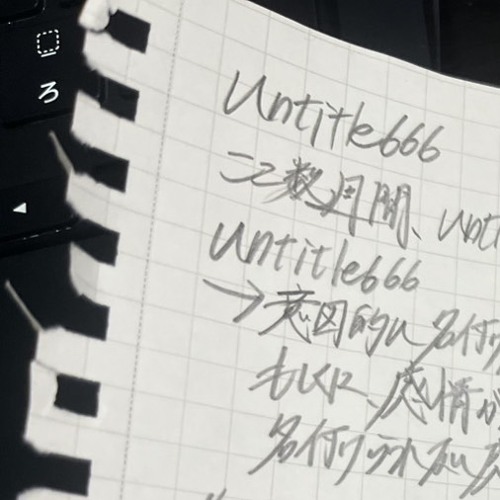 ろ
Untitle666
ここ数週間、unt
Untitle666
→意図的に名付け
もしくは、感情が
名付けられない